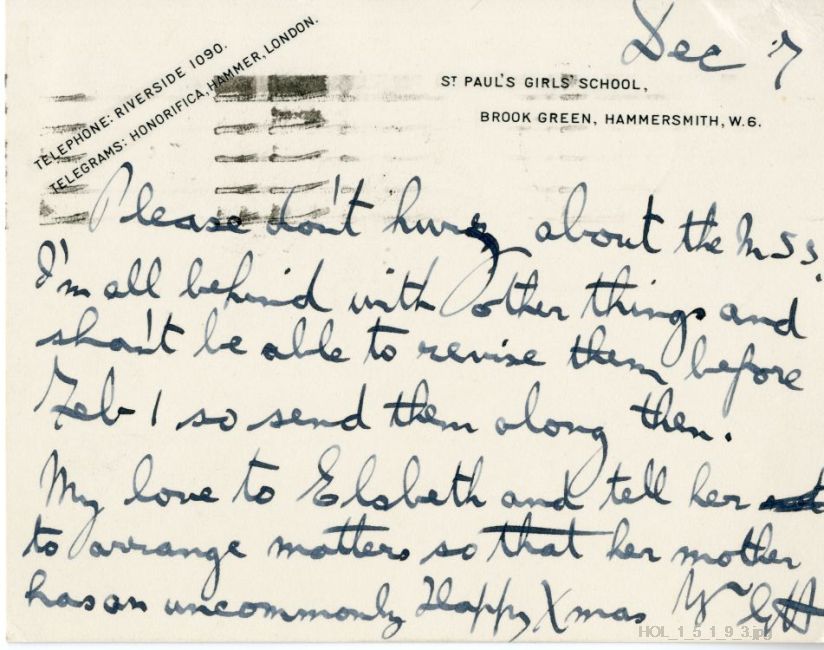 Dec 7
TELEPHONE: RIVERSIDE 1090.
TELEGRAMS: HONORIFICA, HAMMER, LONDON.
ST PAUL'S GIRLS' SCHOOL,
BROOK GREEN, HAMMERSMITH, W.6.
Please don't hurry about the MSS.
I'm all behind with other things and
shan't be able to revise them before
Feb 1 so send them along then.
My love to Elsbeth and tell her
to arrange matters so that her mother
has an uncommonly Happy Xmas Yrs GH
HOL_1_5_1_9_3.jpg